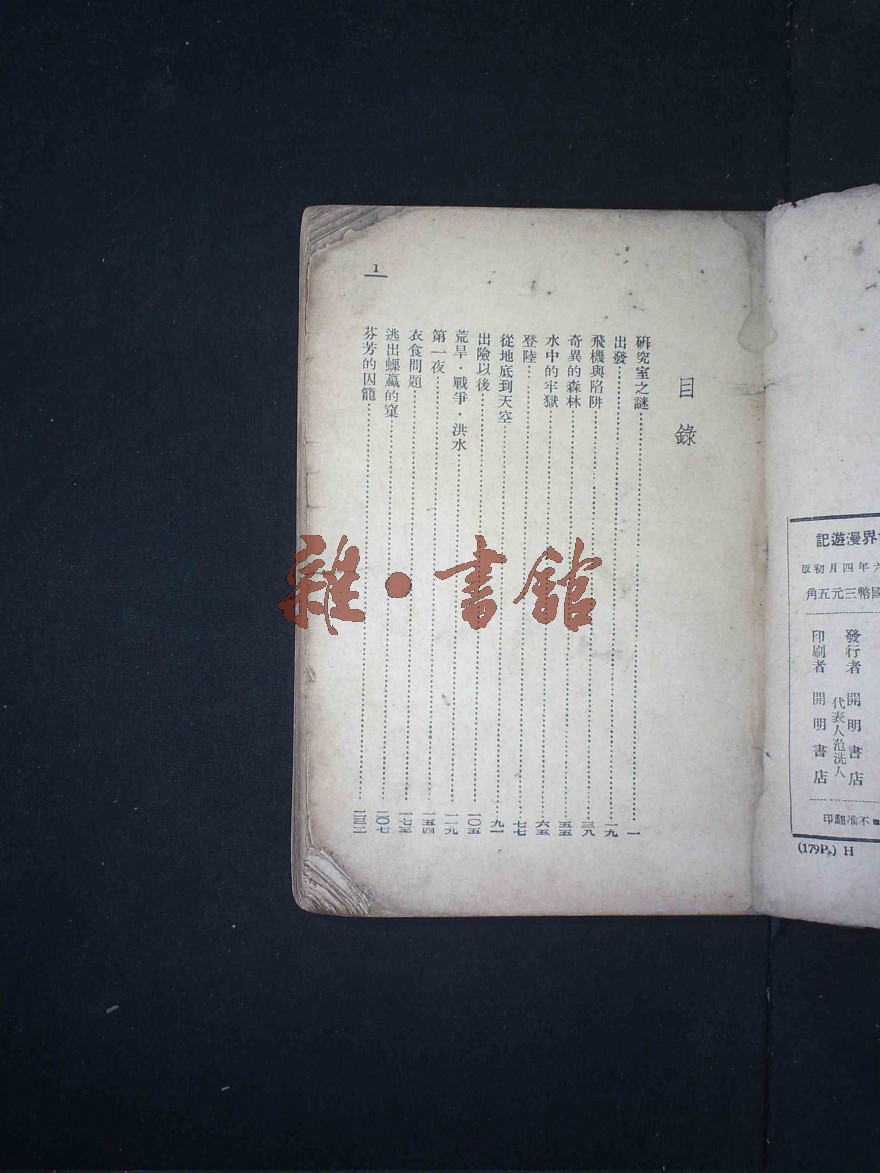 界漫遊記
六年四月初版
國幣三元五角
發行者 開明書店
代表人范洗人
印刷者 開明書店
不准翻印
(179P.) H
目錄
研究室之謎……一
出發……一九
飛機與陷阱……三八
奇異的森林……五五
水中的牢獄……六五
登陸……七七
從地底到天空……九一
出險以後……一〇五
荒旱·戰爭·洪水……一一九
第一夜……一五四
衣食問題……一七五
逃出蜾蠃的窠……二〇七
芬芳的囚籠……二三二
1
雜·書館